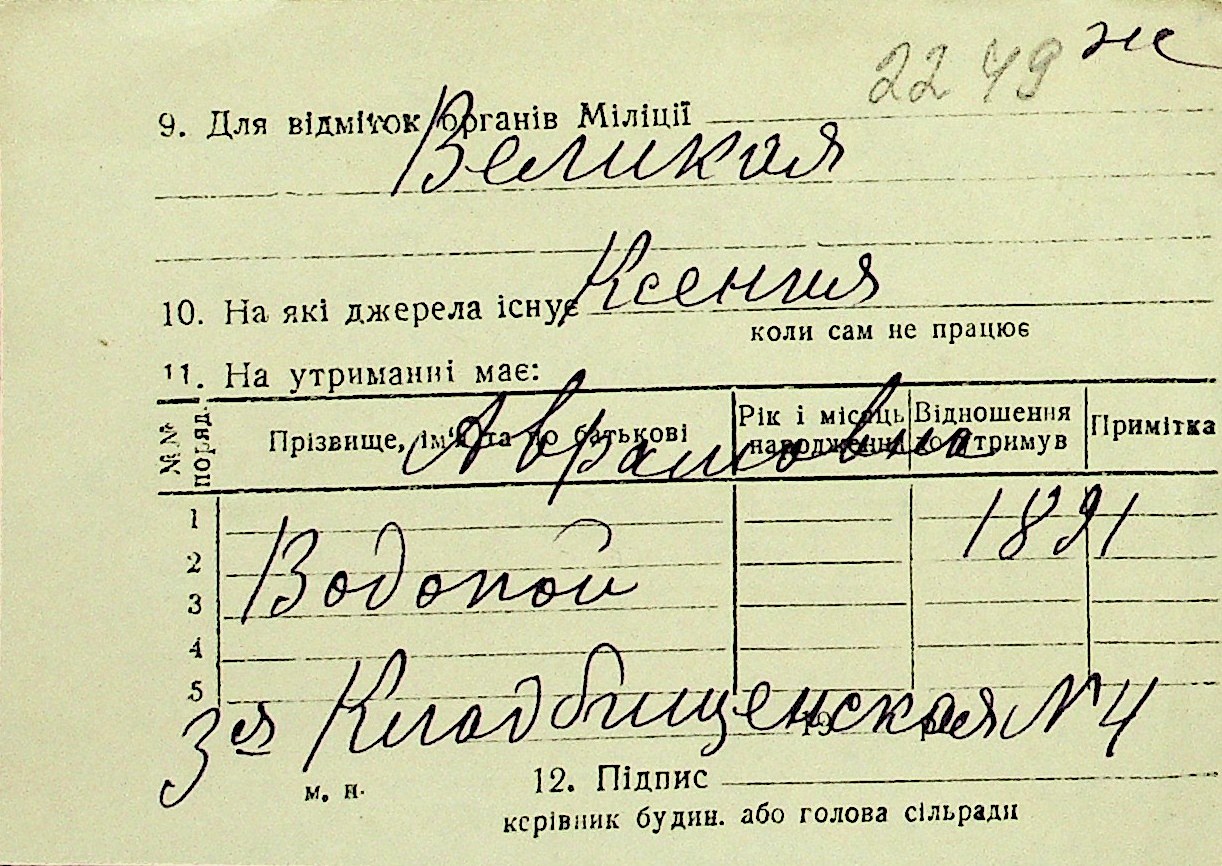 2249 не
9. Для відміток органів Міліції
Великая
Ксения
10. На які джерела існує
коли сам не працює
11. На утриманні має:
Аврамовна
№№ поряд. Прізвище, ім'я та по батькові Рік і місяць народження Відношення до утримув Примітка
1
1891
2
Водопой
3
4
5
3я Кладбищенская №4
19 р.
м. п.
12. Підпис
керівник будин. або голова сільради